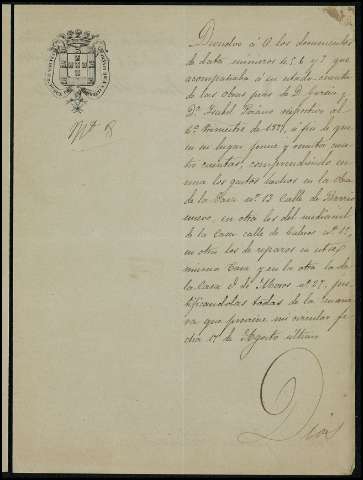 Devuelvo á V. los documentos
de data numeros 4, 5, 6 y 7 que
acompañaba á su estado-cuenta
de las obras pias de D. Fermin y
Dª Isabel respectivo al
trimestre de á fin de que
en su lugar forme y remita cua-
tro cuentas, comprendiendo en
una los gastos hechos en la Obra
de la Casa nº 13 Calle de Barrio
nuevo, en otra los del medianil
de la Casa calle de nº 12,
en otra los de reparos en esta
misma Casa y en la otra la de
la Casa de Moros nº 27, jus-
tificandolas todas de la mane-
ra que previene mi circular fe-
cha 17 de Agosto ultimo
Dios